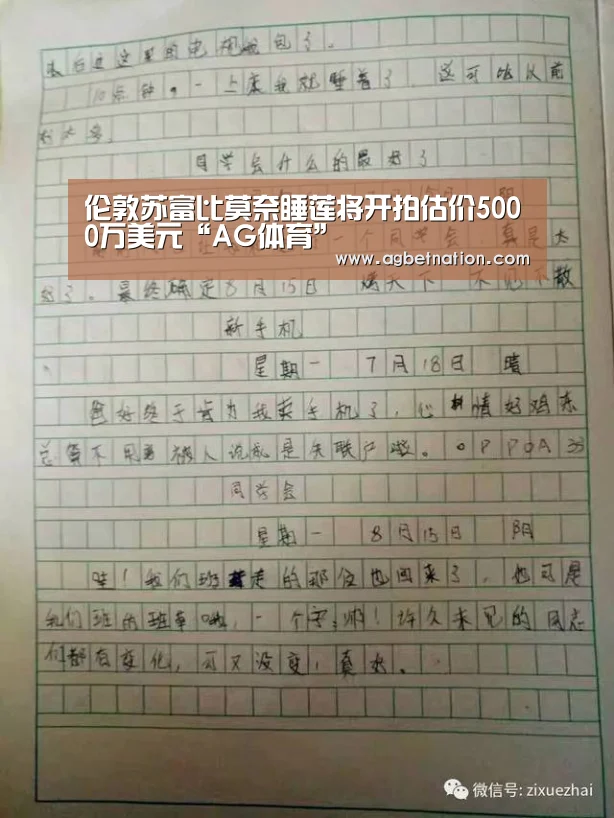 10点钟,一上床我就睡着了,这可给以前
同学会什么的最好了
伦敦苏富比莫奈睡莲将开拍估价500
0万美元“AG体育”
www.agbetnation.com
一个同学会,真是太
好了。最终确定8月15日 天下 不见不散
新手机
星期一 7月18日 晴
爸妈终于肯为我买手机了,心情好鸡冻
总算不用 被人说成是失联户啦。OPPOA33
同学会
星期一 8月15日 阴
哇!我们班 走的那位也回来了,他可是
我们班的班草哦,一个字:帅!许久未见的同志
们都有变化,可又没变,真好。
微信号: zixuezhai